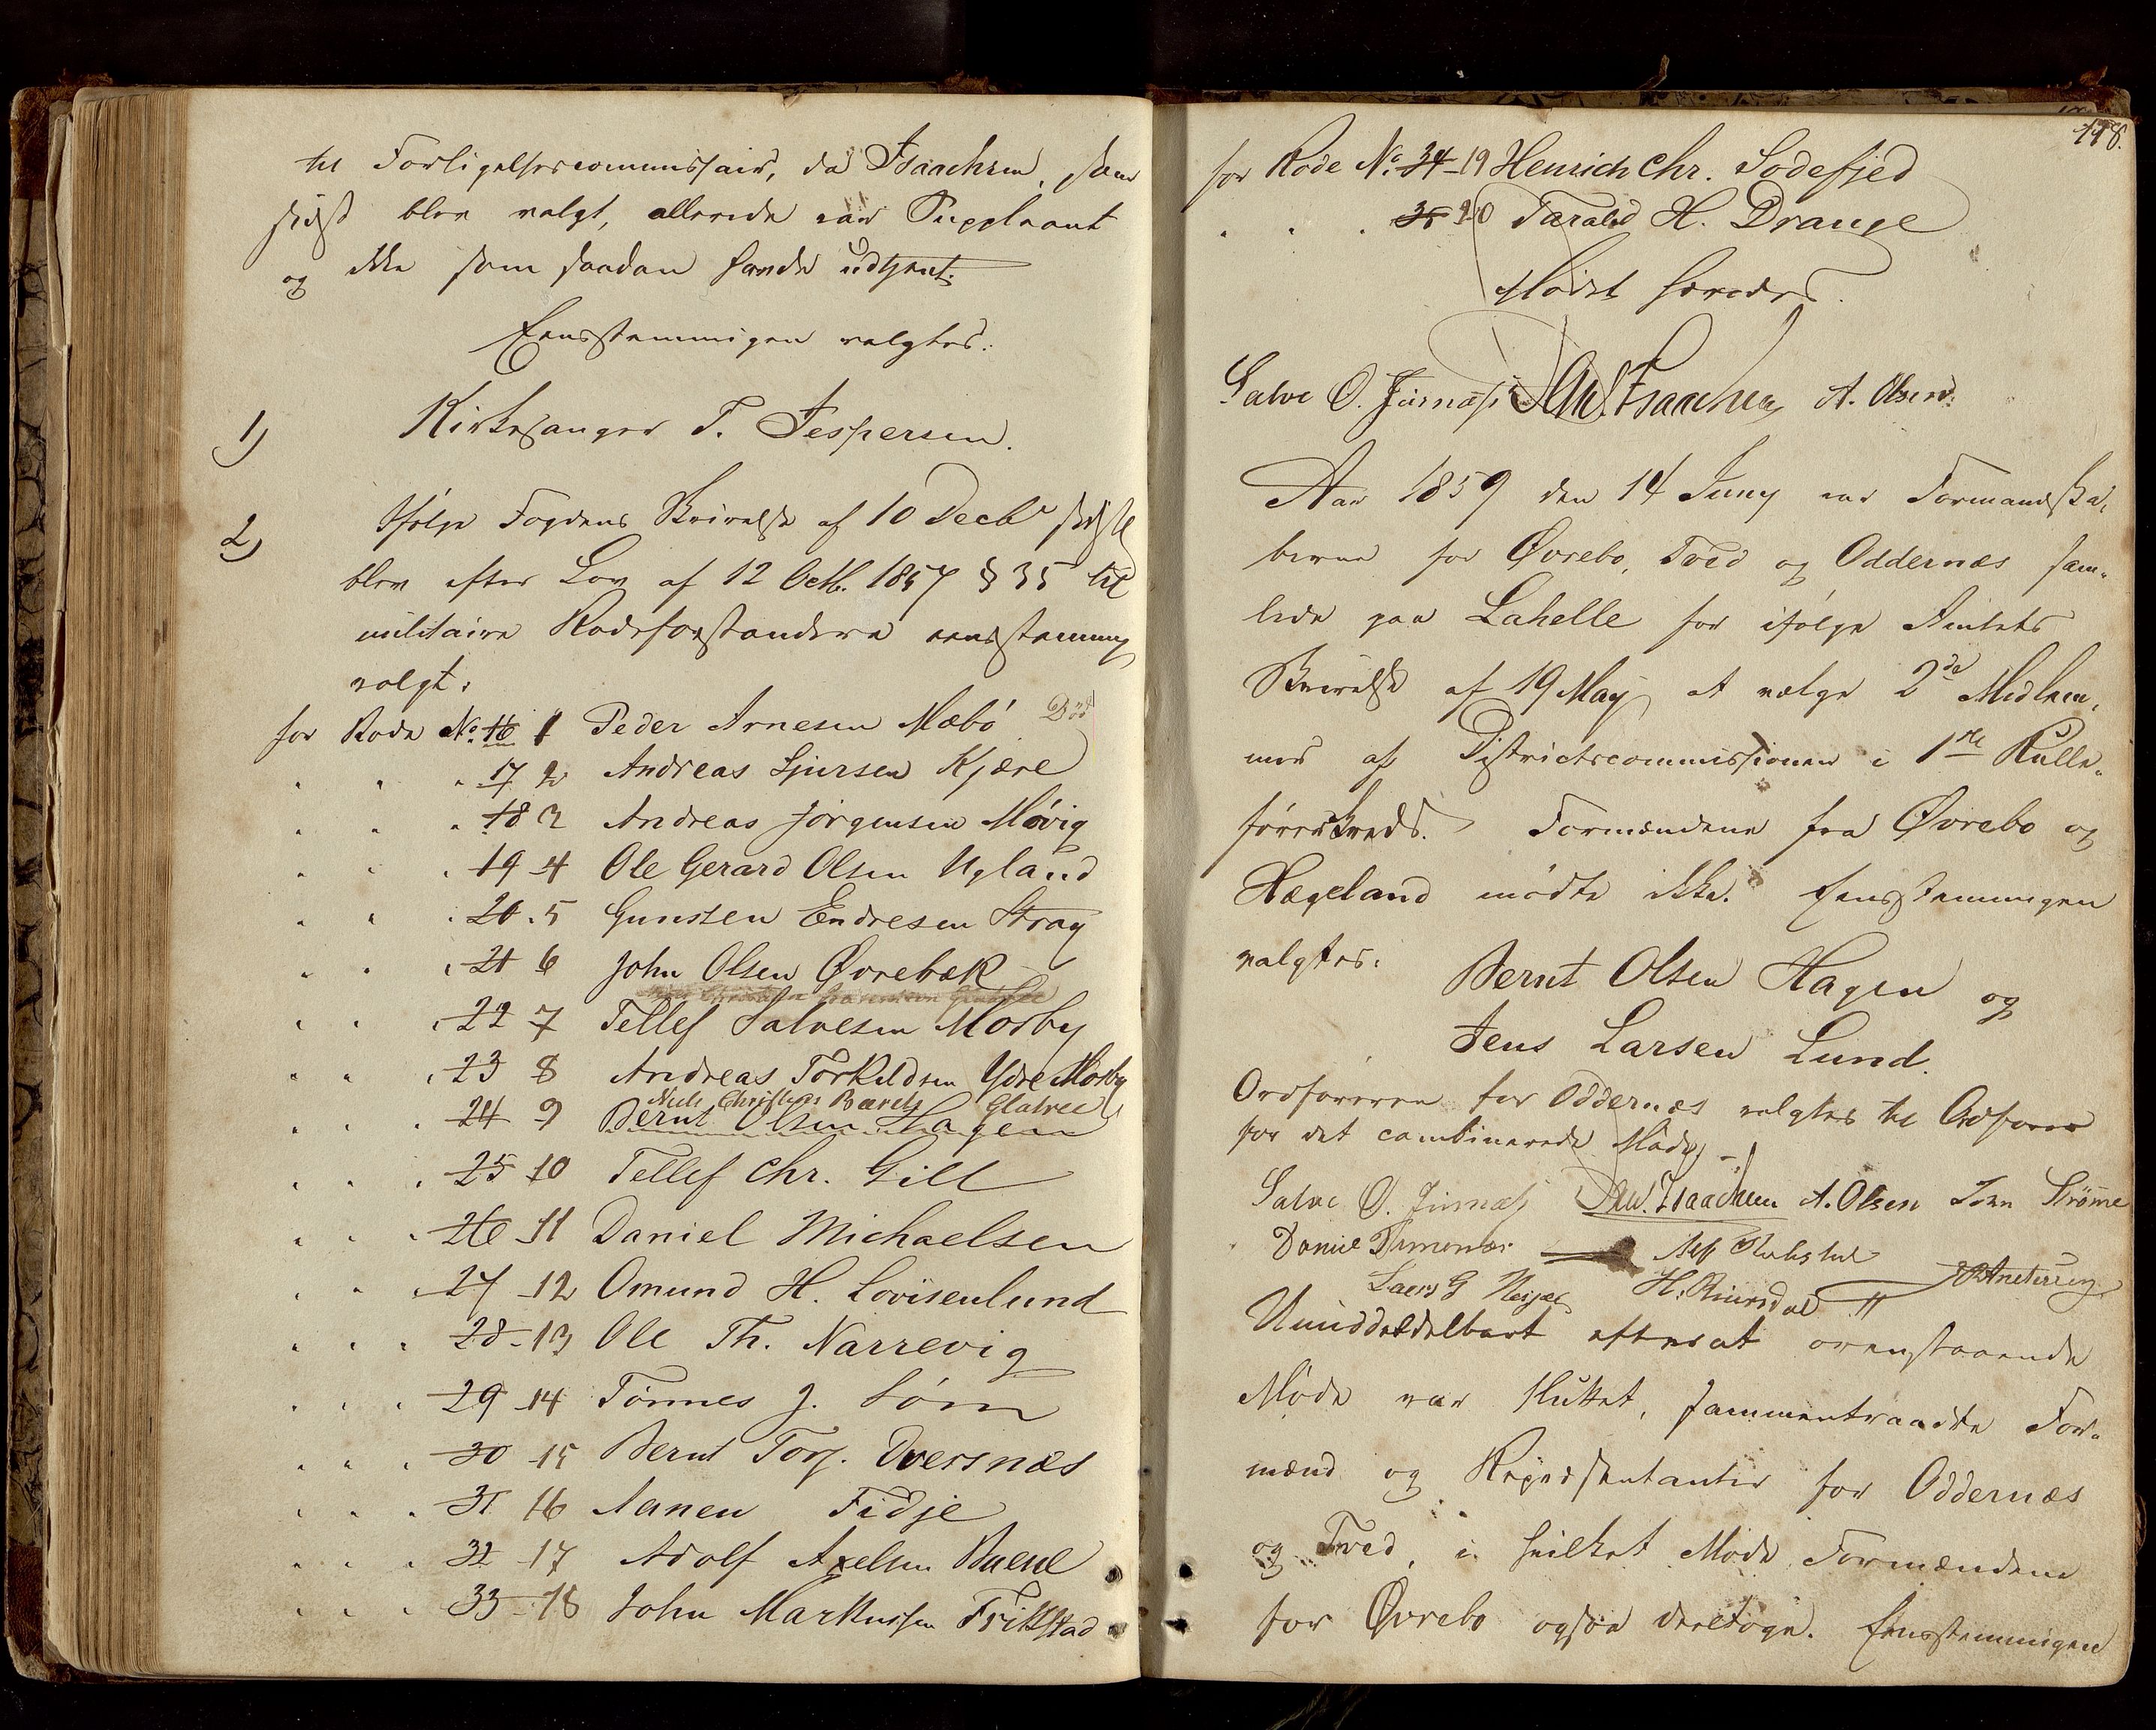 til Forligelsescommissair, da Isaachsen, som
sidst blev valgt, allerede var Suppleant
og ikke som saadan havde udtjent.
Eensstemmigen valgtes:
1) Kirkesanger T. Jespersen.
2) Ifølge Fogdens Skrivelse af 10 Decbr sidstl
blev efter Lov af 12 Octb. 1857 § 35 til
militaire Rodeforstandere eensstemmig
valgt:
for Rode No. 16 1 Peder Arnesen Mæbö Död
" " " 17 2 Andreas Sjursen Kjære
" " " 18 3 Andreas Jörgensen Mövig
" " " 19 4 Ole Gerard Olsen Ugland
" " " 20 5 Gunsten Endresen Stray
" " " 21 6 John Olsen Øvrebæk
" " " 22 7 Tellef Salvesen Mosby
" " " 23 8 Andreas Torkildsen Ydre Mosby
Niels Christian
" " " 24 9 Bernt Olsen Hagen
" " " 25 10 Tellef Chr. Gill
" " " 26 11 Daniel Michaelsen
" " " 27 12 Omund H. Lovisenlund
" " " 28 13 Ole Th. Narrevig
" " " 29 14 Tönnes J. Söm
" " " 30 15 Bernt Torj. Dversnæs
" " " 31 16 Aanen Fidje
" " " 32 17 Adolf Axelsen
" " " 33 18 John Markussen Frikstad
118.
for Rode No. 34 19 Henrich Chr. Sodefjed
" " " 35 20 Tarald H. Drange
Mödet hævedes.
Salve O. Isaachsen A. Olsen
Aar 1859 den 14 Juny var Formandska,
berne for Øvrebo, Tved og Oddernæs sam,
lede paa Lahelle for ifölge Amtets
Skrivelse af 19 May at vælge 2de Medlem,
mer af Districtscommissionen i 1ste Rulle,
förerkreds. Formændene fra Øvrebo og
Hægeland mödte ikke. Eensstemmigen
valgtes:
Bernt Olsen Hagen og
Jens Larsen Lund.
Ordföreren for Oddernæs valgtes til Ordförer
for det combinerede Möde,
Salve O. Isaachsen A. Olsen Strømme
Daniel
Umiddeldelbart efterat ovenstaaende
Möde var sluttet, sammentraadte For,
mænd og Repræsentanter for Oddernæs
og Tved, i hvilket Möde Formændene
for Øvrebo ogsaa deeltoge. Eensstemmigen